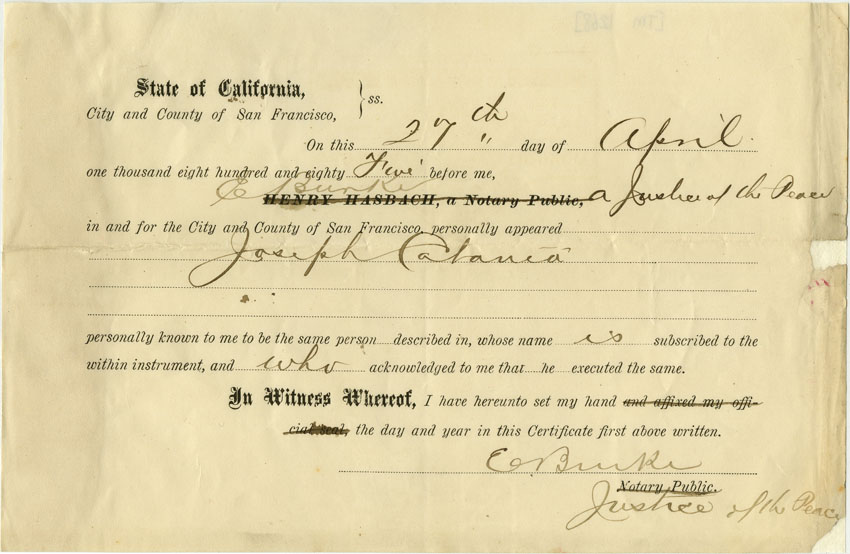 State of California,
City and County of San Francisco, } ss.
On this 27th day of April
one thousand eight hundred and eighty Five before me,
E Burke
HENRY HASBACH, a Notary Public, a Justice of the Peace
in and for the City and County of San Francisco, personally appeared
Joseph Catania
personally known to me to be the same person described in, whose name is subscribed to the
within instrument, and who acknowledged to me that he executed the same.
In Witness Whereof, I have hereunto set my hand and affixed my offi-
cial seal, the day and year in this Certificate first above written.
E Burke
Notary Public.
Justice of the Peace